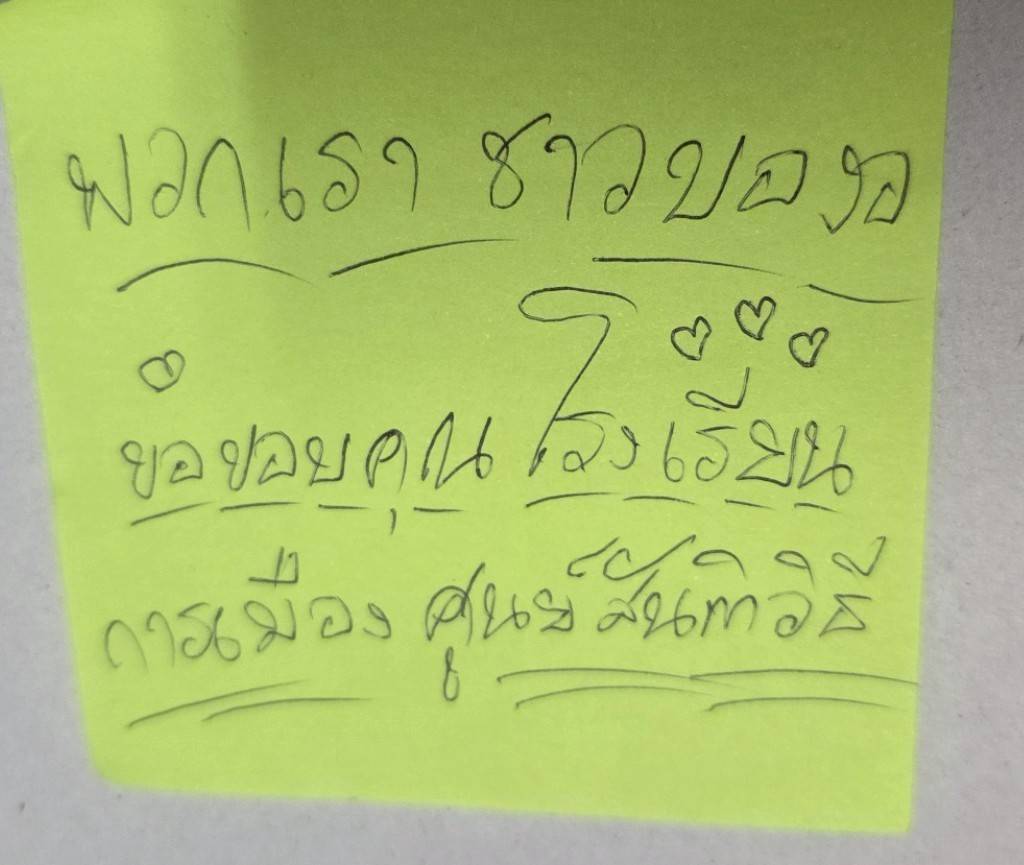 พวกเรา ชาวบองอ
ขอขอบคุณ โรงเรียน
การเมือง ศูนย์สันติวิธี